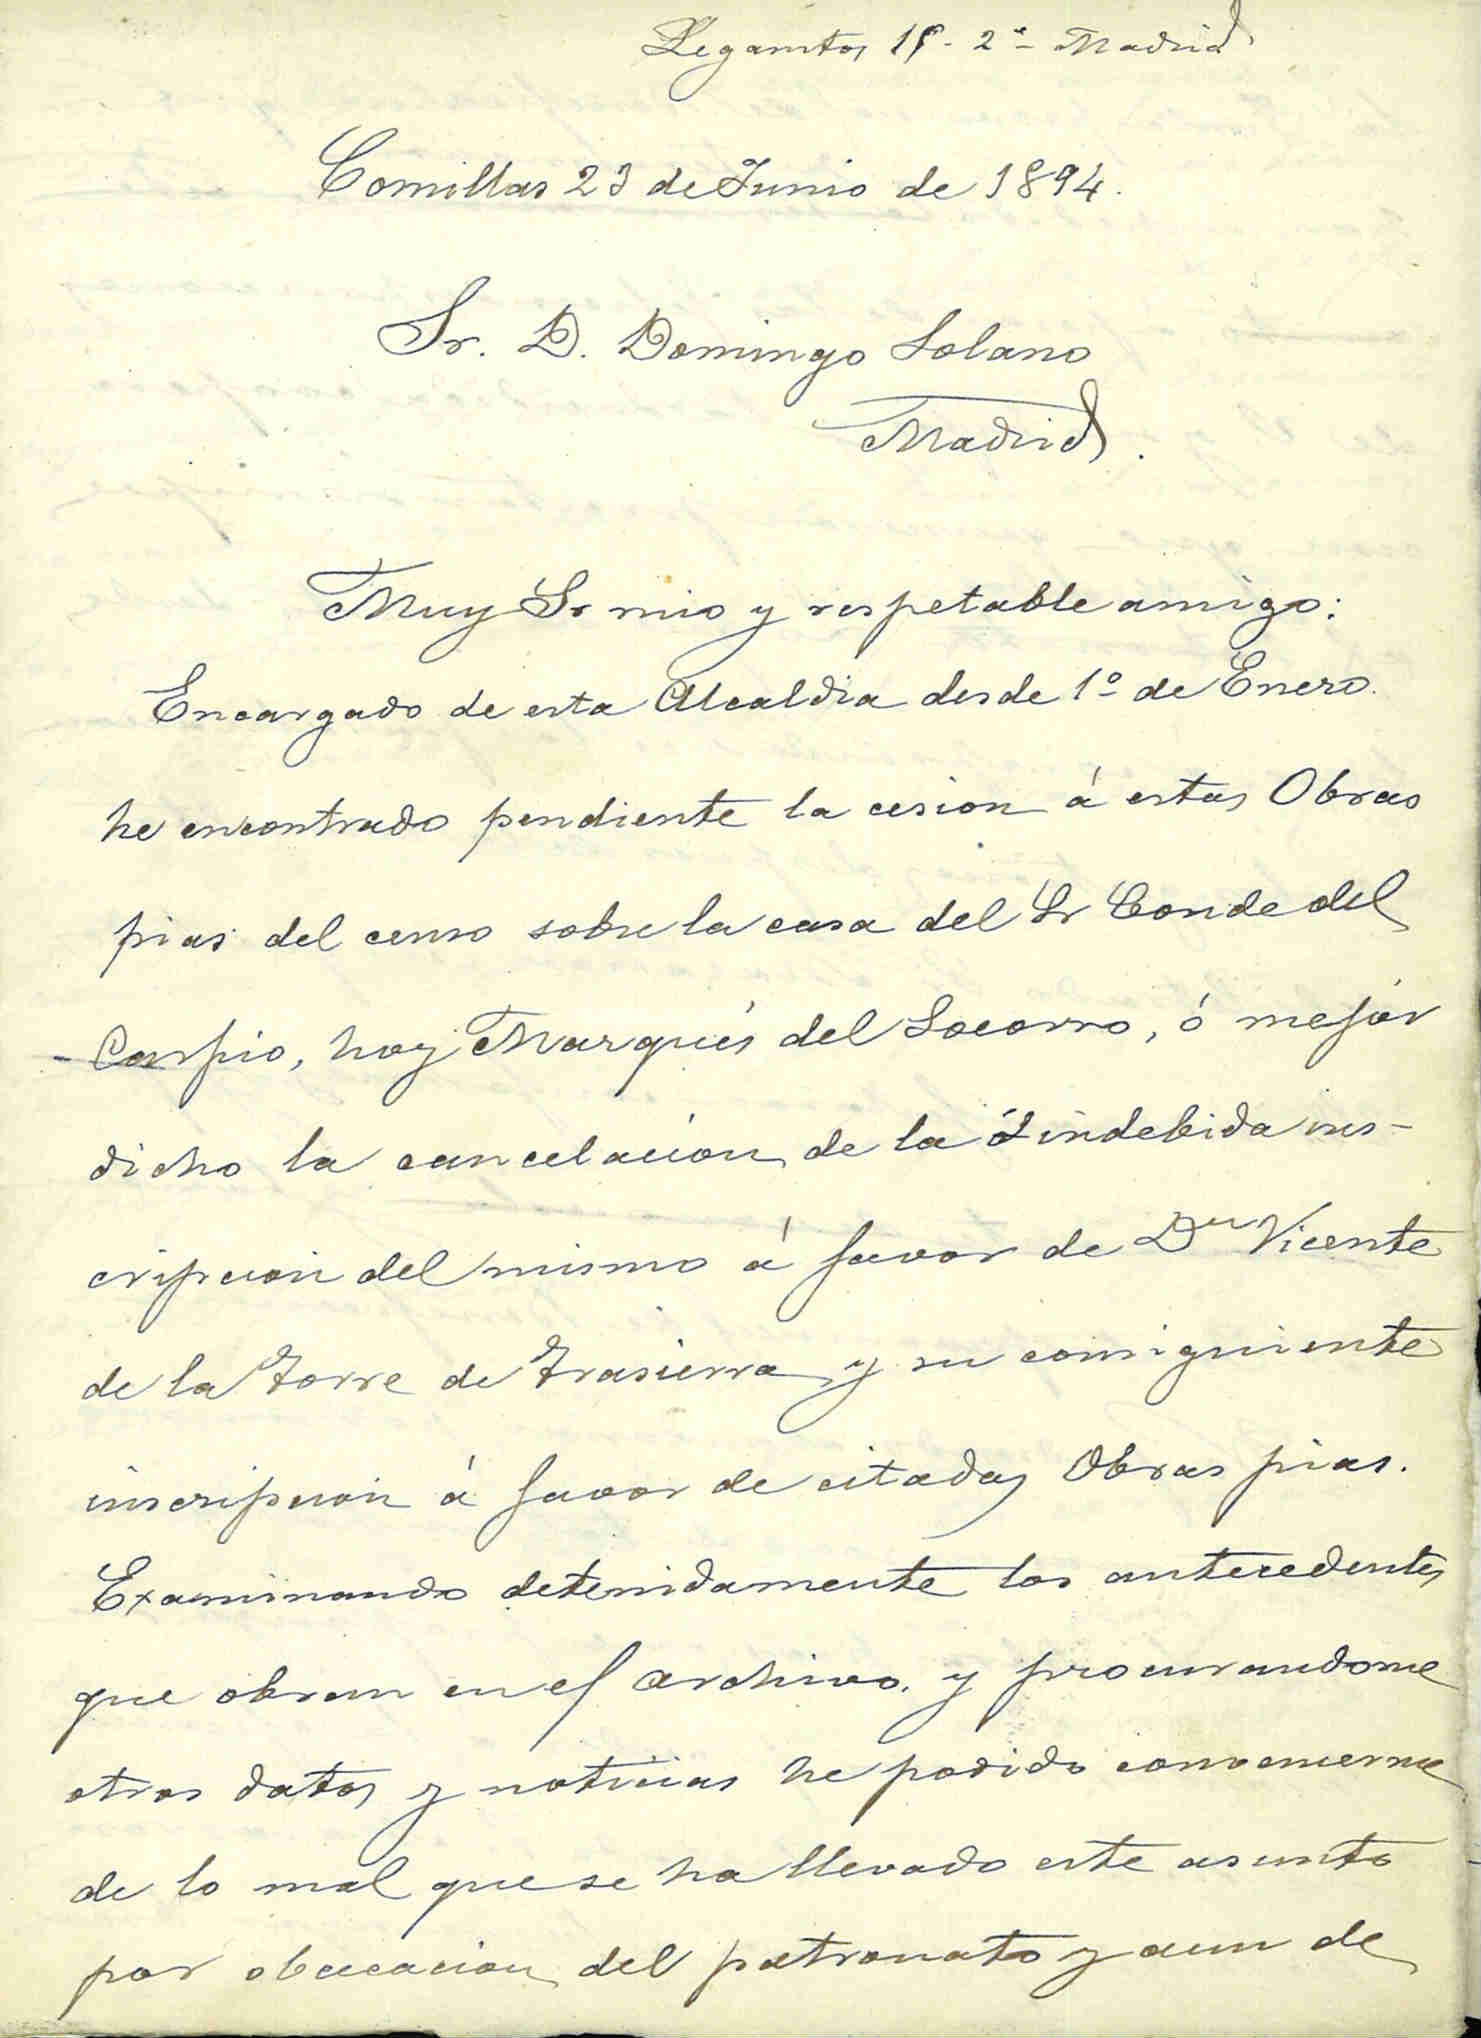 Leganitos 1 - 2º - Madrid
Comillas 23 de Junio de 1894.
Sr. D. Domingo Solano
Madrid.
Muy Sr mio y respetable amigo:
Encargado de esta Alcaldia desde 1º de Enero.
he encontrado pendiente la cesion á estas Obras
pias del censo sobre la casa del Sr Conde del
Carpio, hoy Marqués del Socorro, ó mejor
dicho la cancelacion de la indebida ins-
cripcion del mismo á favor de Dn Vicente
de la Torre de Trasierra y su consiguiente
inscripcion á favor de citadas Obras pias.
Examinando detenidamente los antecedentes
que obran en el archivo. y procurandome
otros datos y noticias he podido convencerme
de lo mal que se ha llevado este asunto
por obcecacion del patronato y aun de